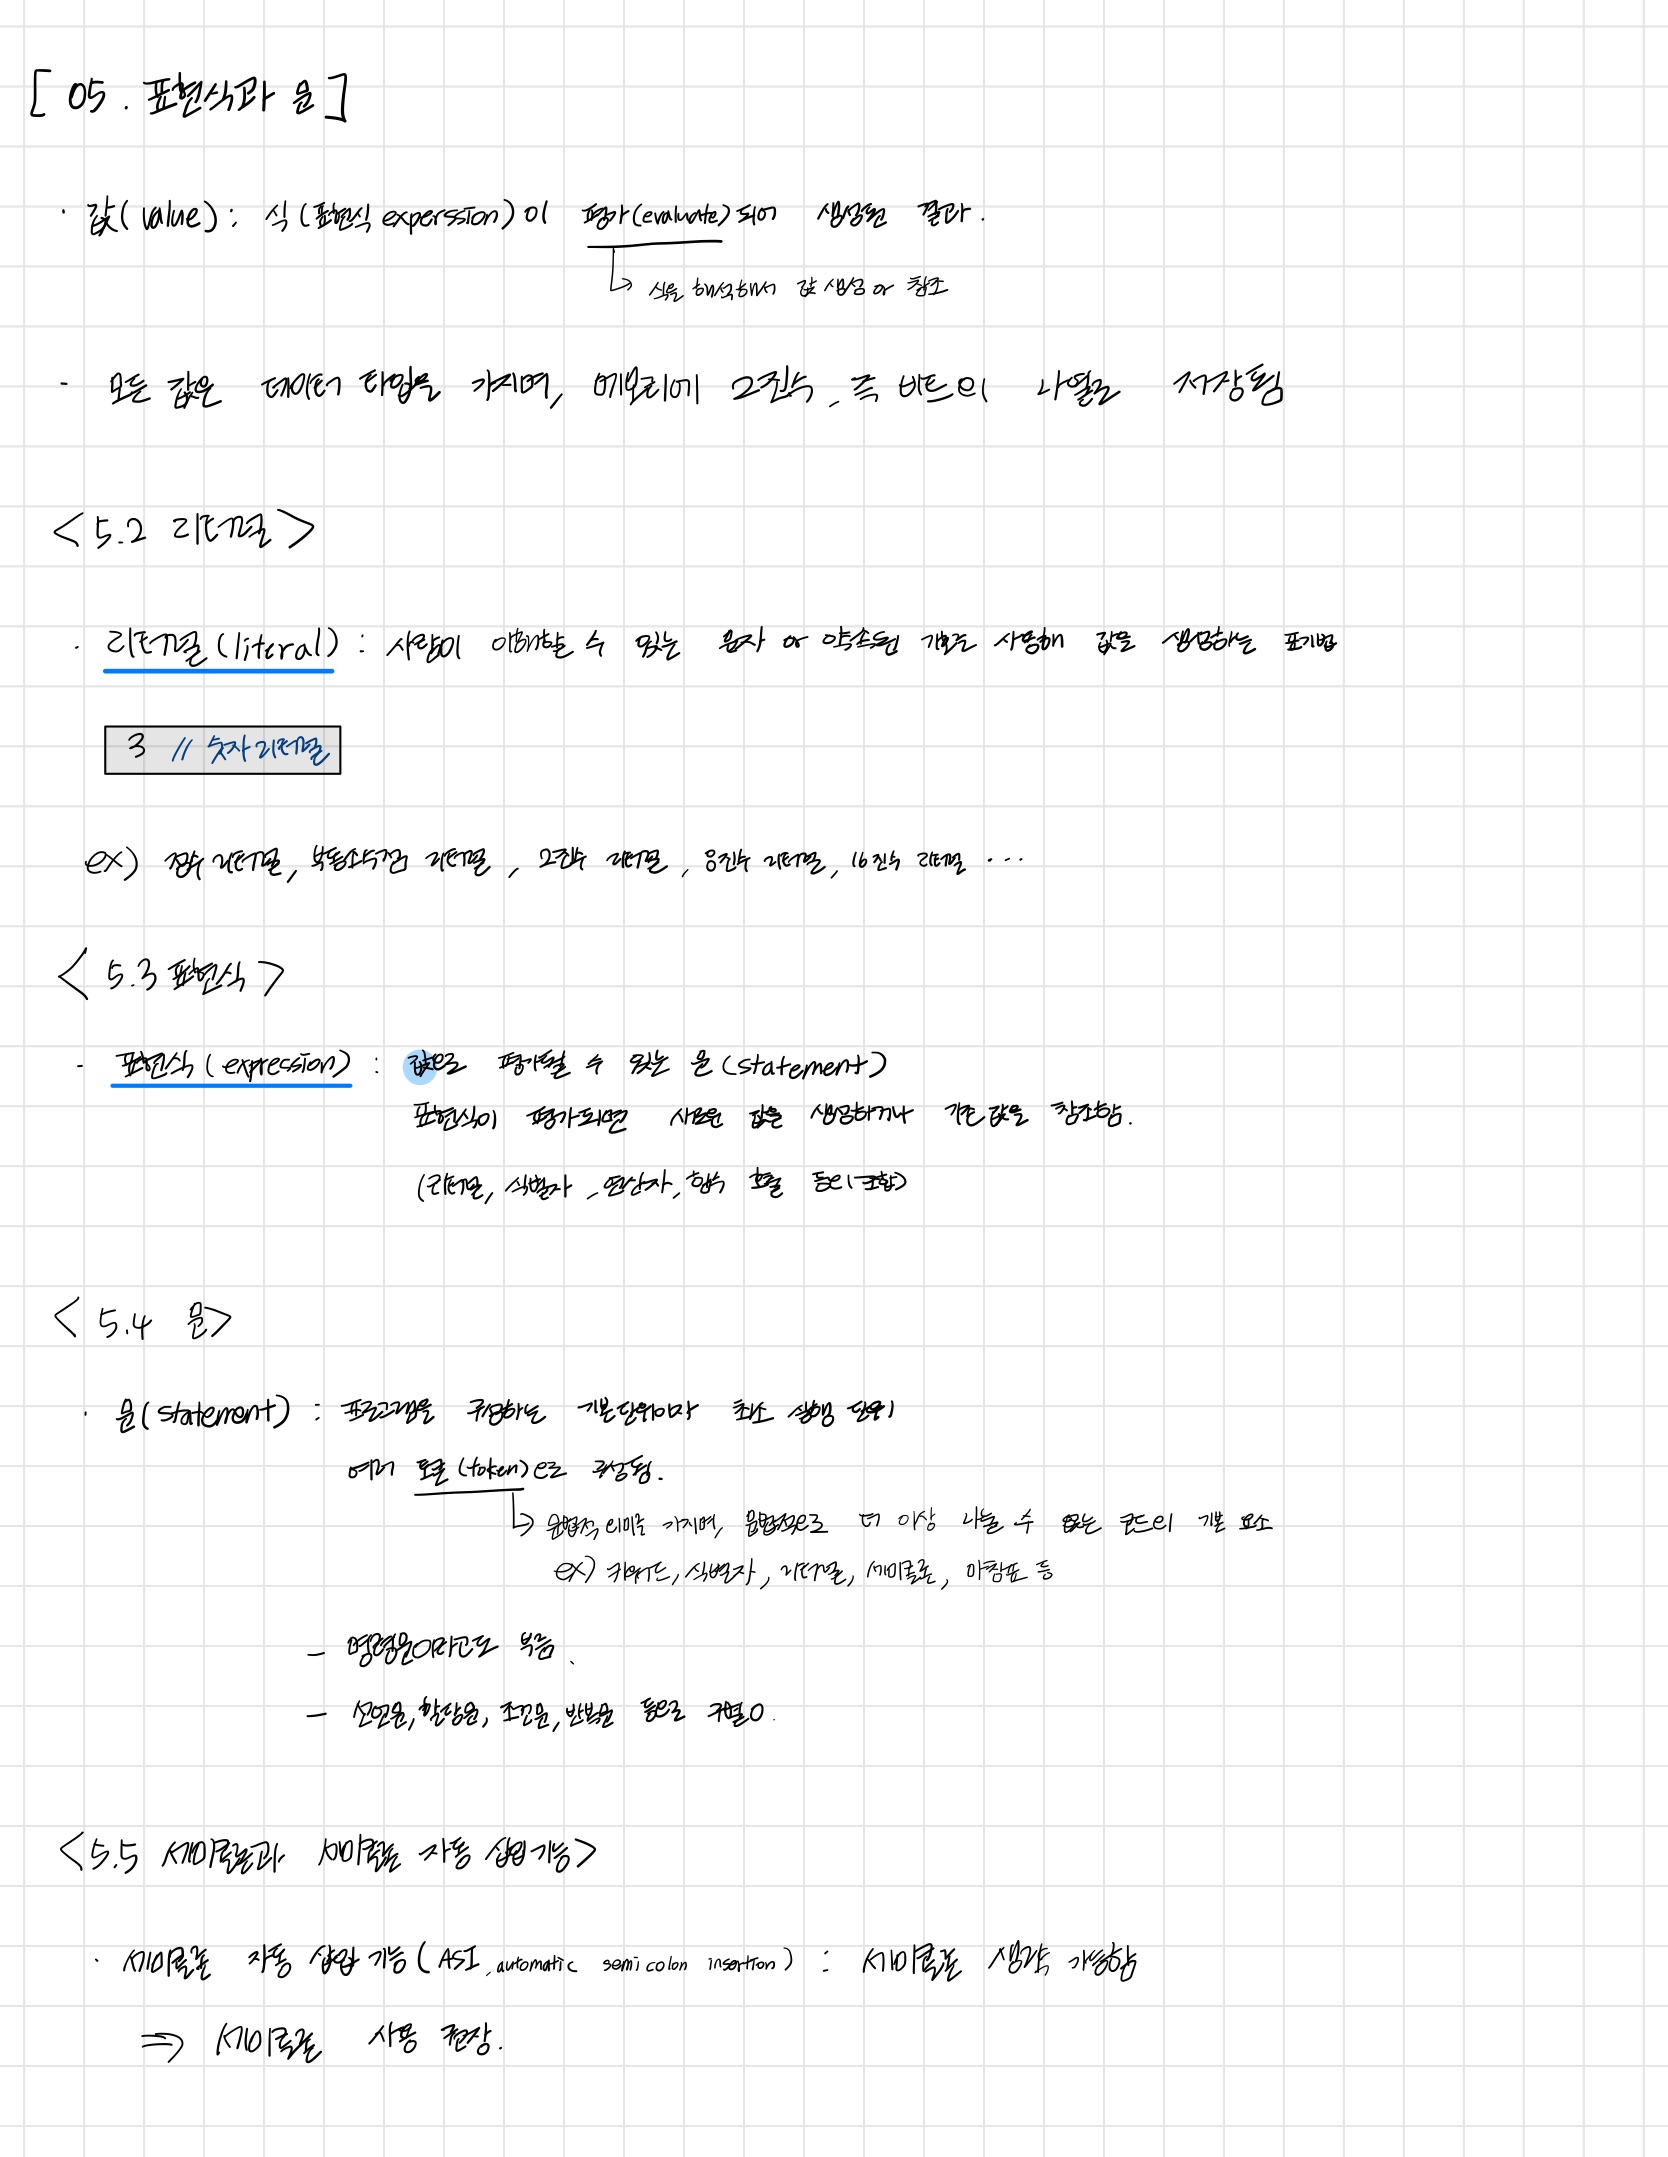 [ 05. 표현식과 문 ]
· 값(value) : 식(표현식 experssion)이 평가(evaluate)되어 생성된 결과.
↳ 식을 해석해서 값 생성 or 참조
- 모든 값은 데이터 타입을 가지며, 메모리에 2진수, 즉 비트의 나열로 저장됨
<5.2 리터럴>
· 리터럴(literal) : 사람이 이해할 수 있는 문자 or 약속된 기호를 사용해 값을 생성하는 표기법
3 // 숫자 리터럴
ex) 정수 리터럴, 부동소수점 리터럴, 2진수 리터럴, 8진수 리터럴, 16진수 리터럴 ···
<5.3 표현식>
- 표현식(expression) : 값으로 평가될 수 있는 문(statement)
표현식이 평가되면 새로운 값을 생성하거나 기존 값을 참조함.
(리터럴, 식별자, 연산자, 함수 호출 등의 조합)
<5.4 문>
· 문(statement) : 프로그램을 구성하는 기본단위이자 최소 실행 단위
여러 토큰(token)으로 구성됨.
↳ 문법적 의미를 가지며, 문법적으로 더 이상 나눌 수 없는 코드의 기본 요소
ex) 키워드, 식별자, 리터럴, 세미콜론, 마침표 등
- 명령문이라고도 부름.
- 선언문, 할당문, 조건문, 반복문 등으로 구별O.
<5.5 세미콜론과 세미콜론 자동 삽입 기능>
· 세미콜론 자동 삽입 기능(ASI, automatic semicolon insertion) : 세미콜론 생략 가능함
⇒ 세미콜론 사용 권장.